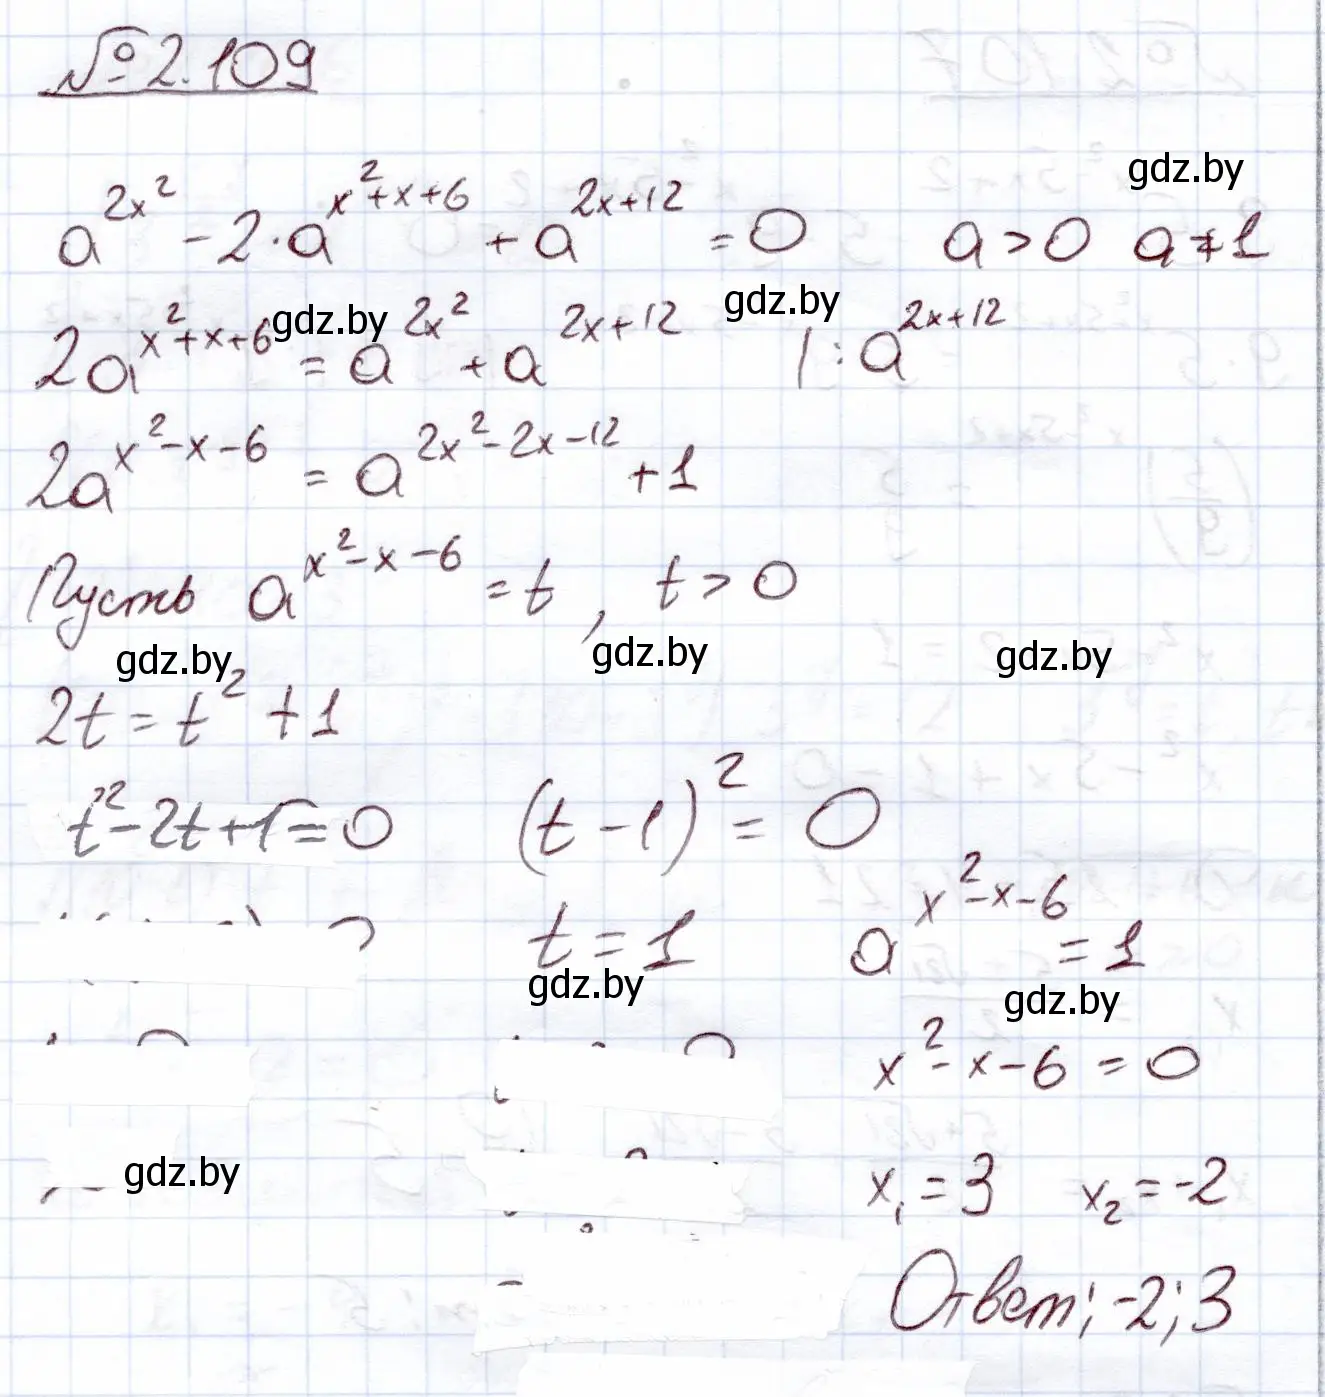 № 2.109
a^{2x^2} - 2·a^{x^2+x+6} + a^{2x+12} = 0   a > 0   a ≠ 1
gdz.by
2a^{x^2+x+6} = a^{2x^2} + a^{2x+12}   | : a^{2x+12}
gdz.by   gdz.by
2a^{x^2-x-6} = a^{2x^2-2x-12} + 1
Пусть a^{x^2-x-6} = t, t > 0
gdz.by   gdz.by   gdz.by
2t = t^2 + 1
t^2 - 2t + 1 = 0   (t - 1)^2 = 0
t = 1   a^{x^2-x-6} = 1
gdz.by   gdz.by
x^2 - x - 6 = 0
gdz.by
x_1 = 3   x_2 = -2
Ответ: -2; 3